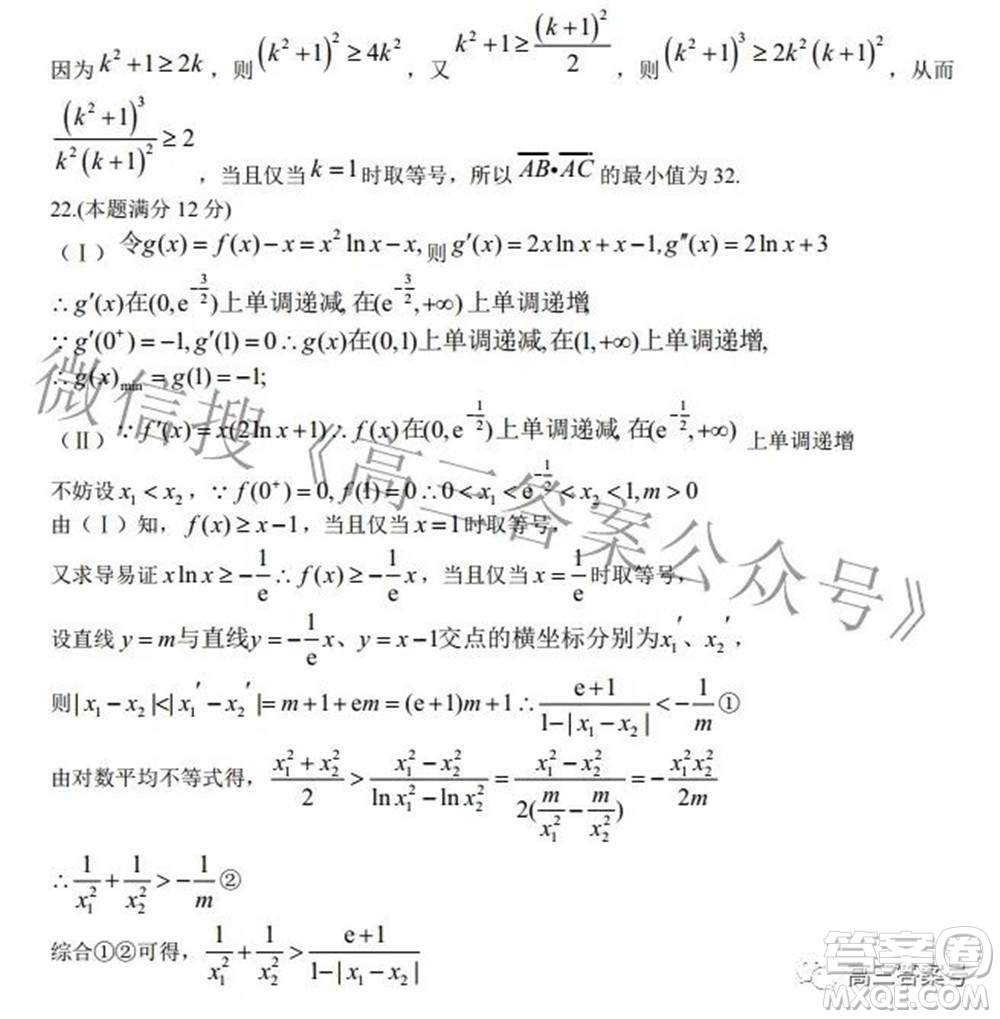 因为 k²+1≥2k ，则 (k²+1)²≥4k² ，又 k²+1≥(k+1)²/2 ，则 (k²+1)³≥2k²(k+1)² ，从而
(k²+1)³/(k²(k+1)²)≥2 ，当且仅当 k=1 时取等号，所以 AB•AC 的最小值为 32.
22.(本题满分 12 分)
（Ⅰ）令g(x)=f(x)−x=x²lnx−x,则g′(x)=2xlnx+x−1,g″(x)=2lnx+3
∴g′(x)在(0,e^(−3/2))上单调递减,在(e^(−3/2),+∞)上单调递增,
∵g′(0⁺)=−1,g′(1)=0∴g(x)在(0,1)上单调递减,在(1,+∞)上单调递增,
∴g(x)min=g(1)=−1;
（Ⅱ）∵f′(x)=x(2lnx+1)∴f(x)在(0,e^(−1/2))上单调递减,在(e^(−1/2),+∞) 上单调递增
不妨设 x₁<x₂，∵f(0⁺)=0,f(1)=0∴0<x₁<e^(−1/2)<x₂<1,m>0
由（Ⅰ）知，f(x)≥x−1，当且仅当 x=1时取等号，
又求导易证 xlnx≥−1/e∴f(x)≥−(1/e)x，当且仅当 x=1/e 时取等号，
设直线 y=m与直线y=−(1/e)x、y=x−1交点的横坐标分别为x₁′、x₂′，
则|x₁−x₂|<|x₁′−x₂′|=m+1+em=(e+1)m+1∴(e+1)/(1−|x₁−x₂|)<−1/m①
由对数平均不等式得，(x₁²+x₂²)/2>(x₁²−x₂²)/(lnx₁²−lnx₂²)=(x₁²−x₂²)/(2(m/x₁²−m/x₂²))=−x₁²x₂²/(2m)
∴1/x₁²+1/x₂²>−1/m②
综合①②可得，1/x₁²+1/x₂²>(e+1)/(1−|x₁−x₂|)
微信搜《高三答案公众号》
高三答案号
答案圈
MXQE.COM